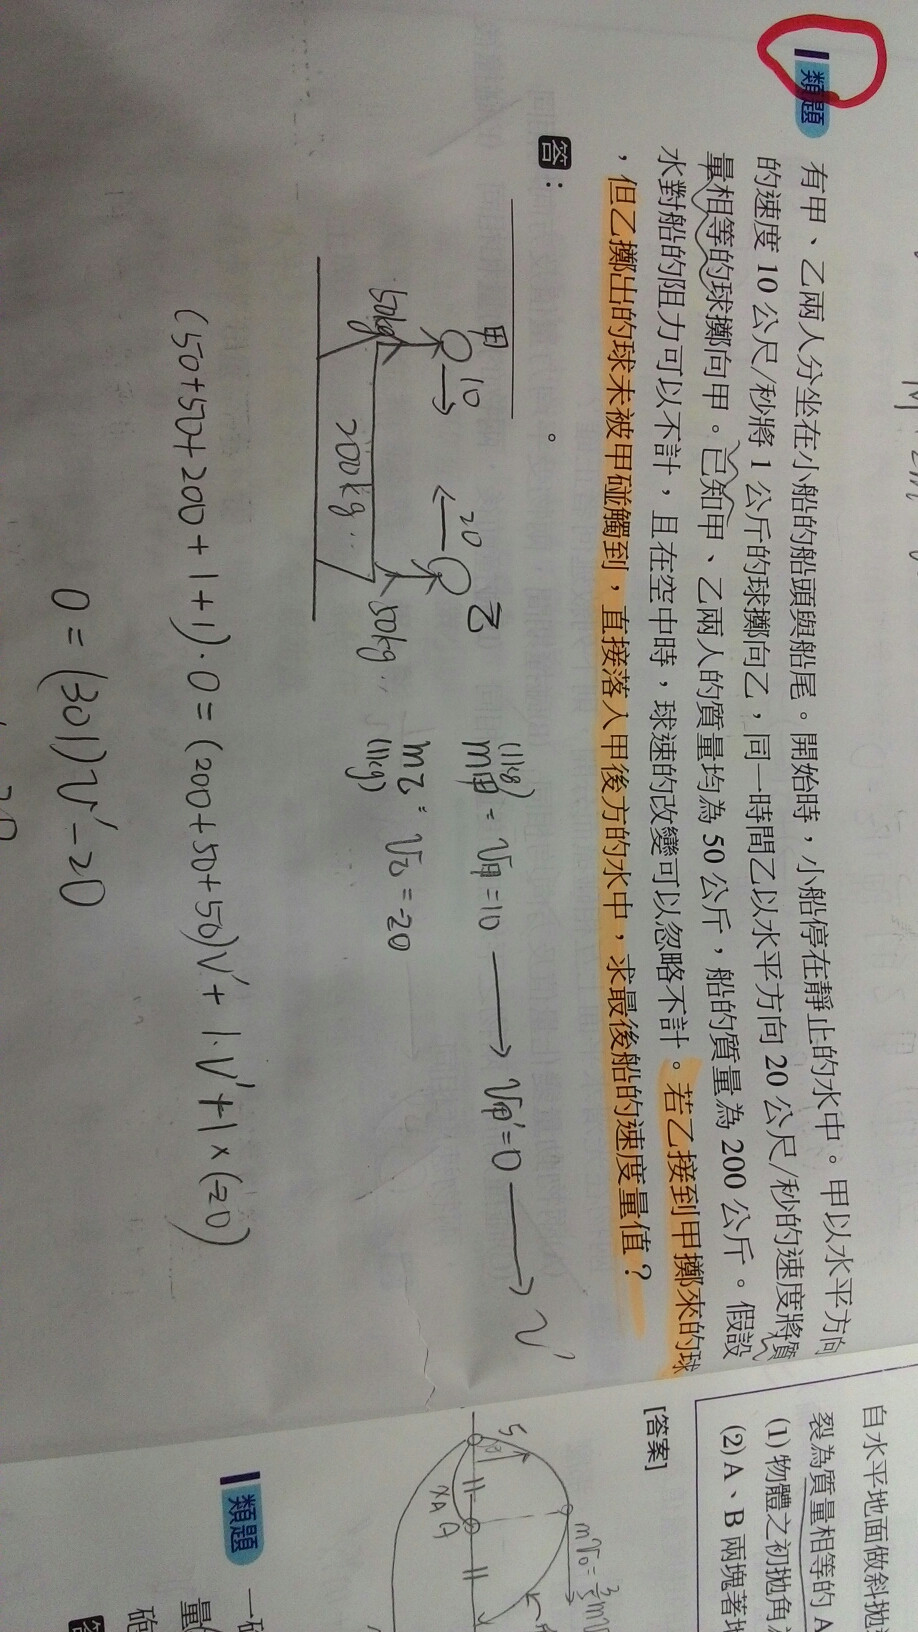 類題
有甲、乙兩人分坐在小船的船頭與船尾。開始時，小船停在靜止的水中。甲以水平方向
的速度 10 公尺/秒將 1 公斤的球擲向乙，同一時間乙以水平方向 20 公尺/秒的速度將質
量相等的球擲向甲。已知甲、乙兩人的質量均為 50 公斤，船的質量為 200 公斤。假設
水對船的阻力可以不計，且在空中時，球速的改變可以忽略不計。若乙接到甲擲來的球
，但乙擲出的球未被甲碰觸到，直接落入甲後方的水中，求最後船的速度量值？
答：
。
甲 10
20 乙
50kg
200kg
50kg
(1kg)
m甲 = V甲=10 → V甲'=0 → V'
m乙 = V乙=-20
(1kg)
(50+50+200+1+1)·0=(200+50+50)V'+1·V'+1×(-20)
0=(301)V'-20
自水平地面做斜拋
裂為質量相等的 A
(1) 物體之初拋角
(2) A、B 兩塊著地
[答案]
5
xA A
類題
一
量
砲
答